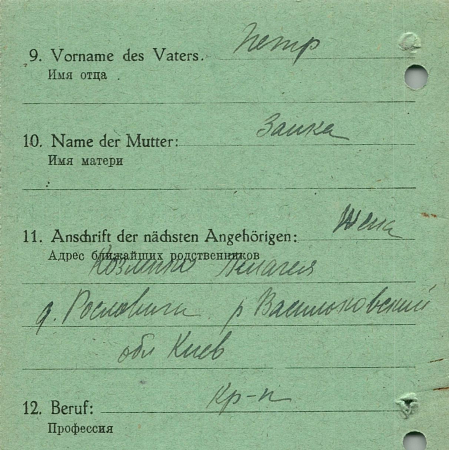 9. Vorname des Vaters. Петр
Имя отца
10. Name der Mutter: Заика
Имя матери
11. Anschrift der nächsten Angehörigen: Жена
Адрес ближайших родственников
Козленко Пелагея
д. Рославичи р Васильковский
обл Киев
12. Beruf: кр-н
Профессия